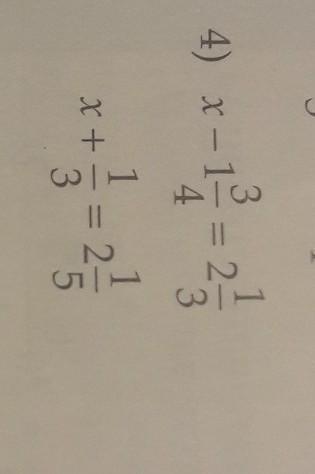 4) x − 1 3/4 = 2 1/3
x + 1/3 = 2 1/5